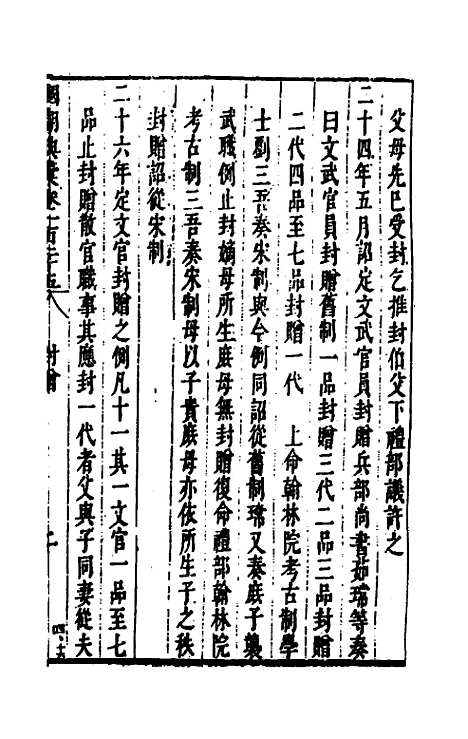 父母先已受封乞推封伯父下禮部議許之
二十四年五月詔定文武官員封贈兵部尚書茹瑺等奏
曰文武官員封贈舊制一品封贈三代二品三品封贈
二代四品至七品封贈一代　上命翰林院考古制學
士劉三吾奏宋制與今例同詔從舊制瑺又奏庶子襲
武職例止封嫡母所生庶母無封贈復命禮部翰林院
考古制三吾奏宋制母以子貴庶母亦依所生子之秩
封贈詔從宋制
二十六年定文官封贈之例凡十一其一文官一品至七
品止封贈散官職事其應封一代者父與子同妻從夫
國朝典彙卷一百三十五
封贈
二